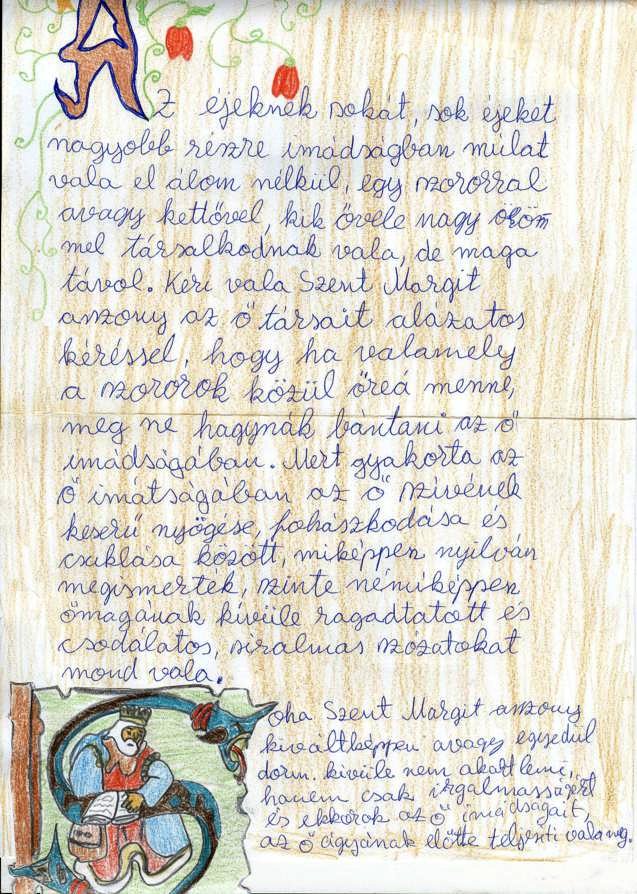 AZ éjeknek sokát, sok éjeket
nagyobb részre imádságban múlat
vala el álom nélkül, egy szororral
avagy kettővel, kik ővele nagy öröm
mel társalkodnak vala, de maga
távol. Kéri vala Szent Margit
asszony az ő társait alázatos
kéréssel, hogy ha valamely
a szororok közül őreá menne,
meg ne hagynák bántani az ő
imádságában. Mert gyakorta az
ő imátságában az ő szivének
keserű nyögése, fohászkodása és
csuklása között, miképpen nyilván
megismerték, szinte némüképpen
őmagának kivüle ragadtatott és
csodálatos, siralmas szózatokat
mond vala.
Soha Szent Margit asszony
kiváltképpen avagy egyedül
dorm. kivüle nem akart lenni,
hanem csak irgalmasságért
és ekkorok az ő imádságait,
az ő ágyának előtte teljesiti vala meg.